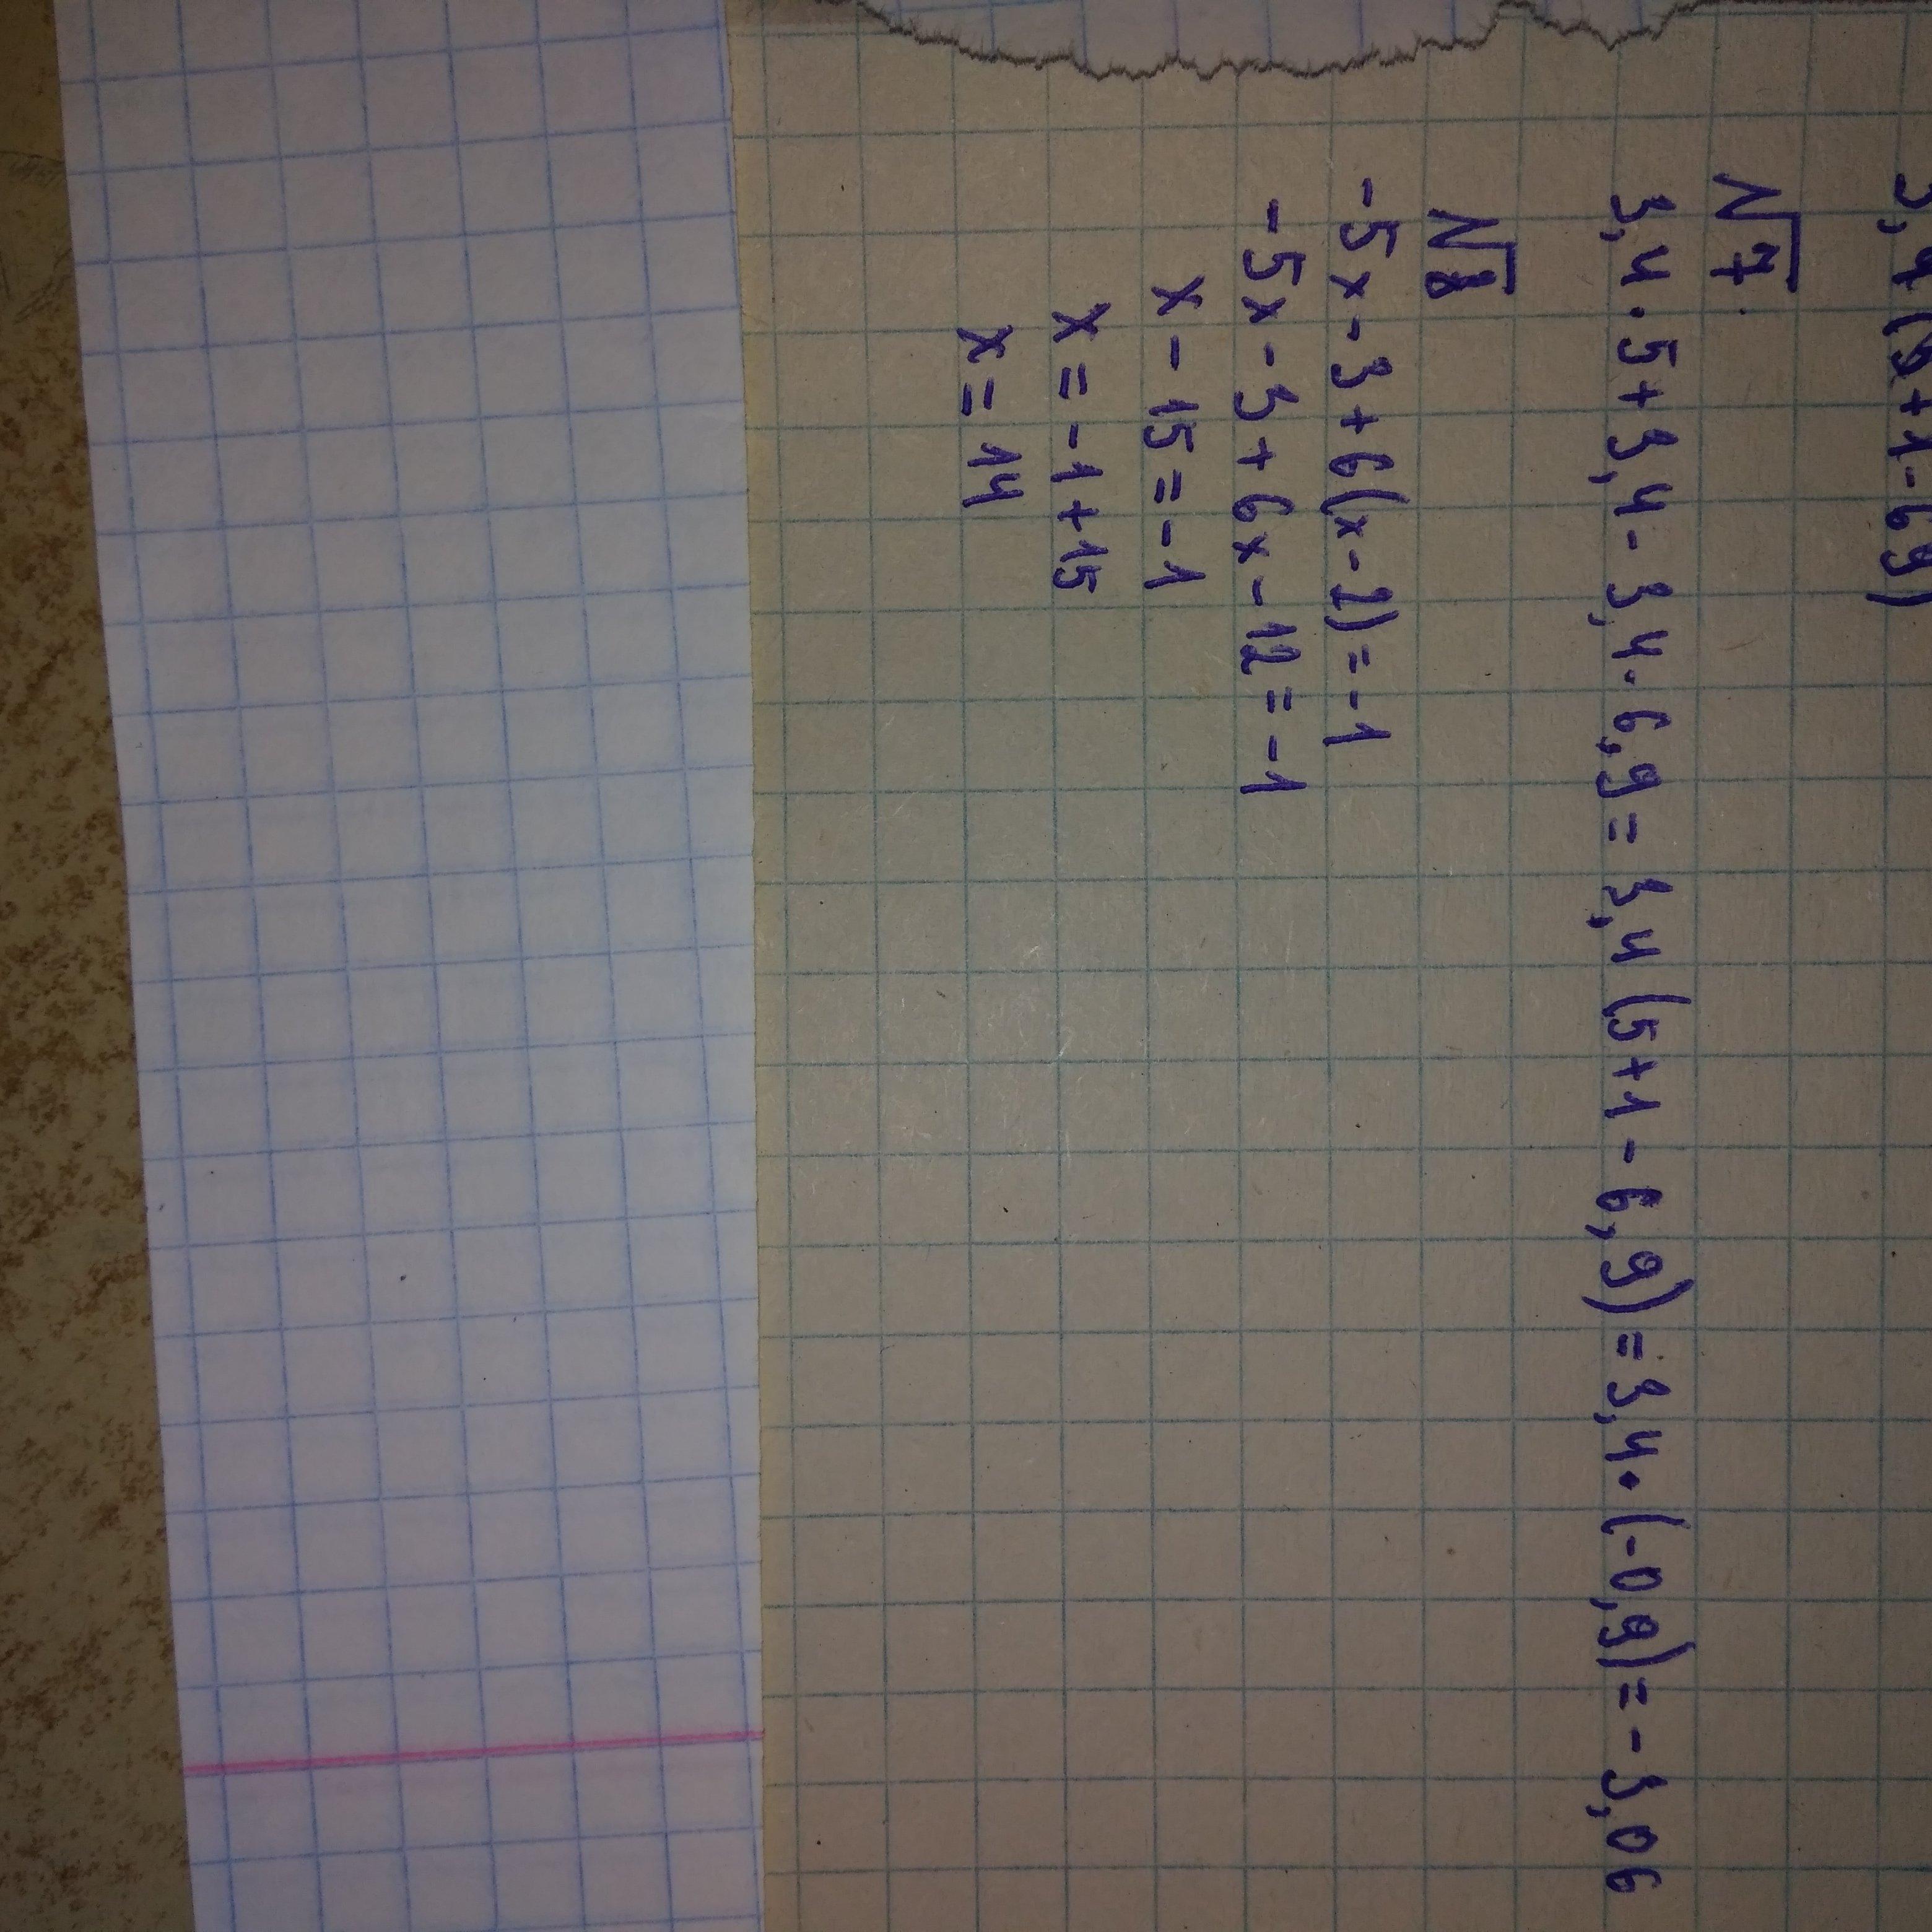 3,4(5+1-6,9)
№7.
3,4·5+3,4-3,4·6,9=3,4(5+1-6,9)=3,4·(-0,9)=-3,06
№8
-5x-3+6(x-2)=-1
-5x-3+6x-12=-1
x-15=-1
x=-1+15
x=14